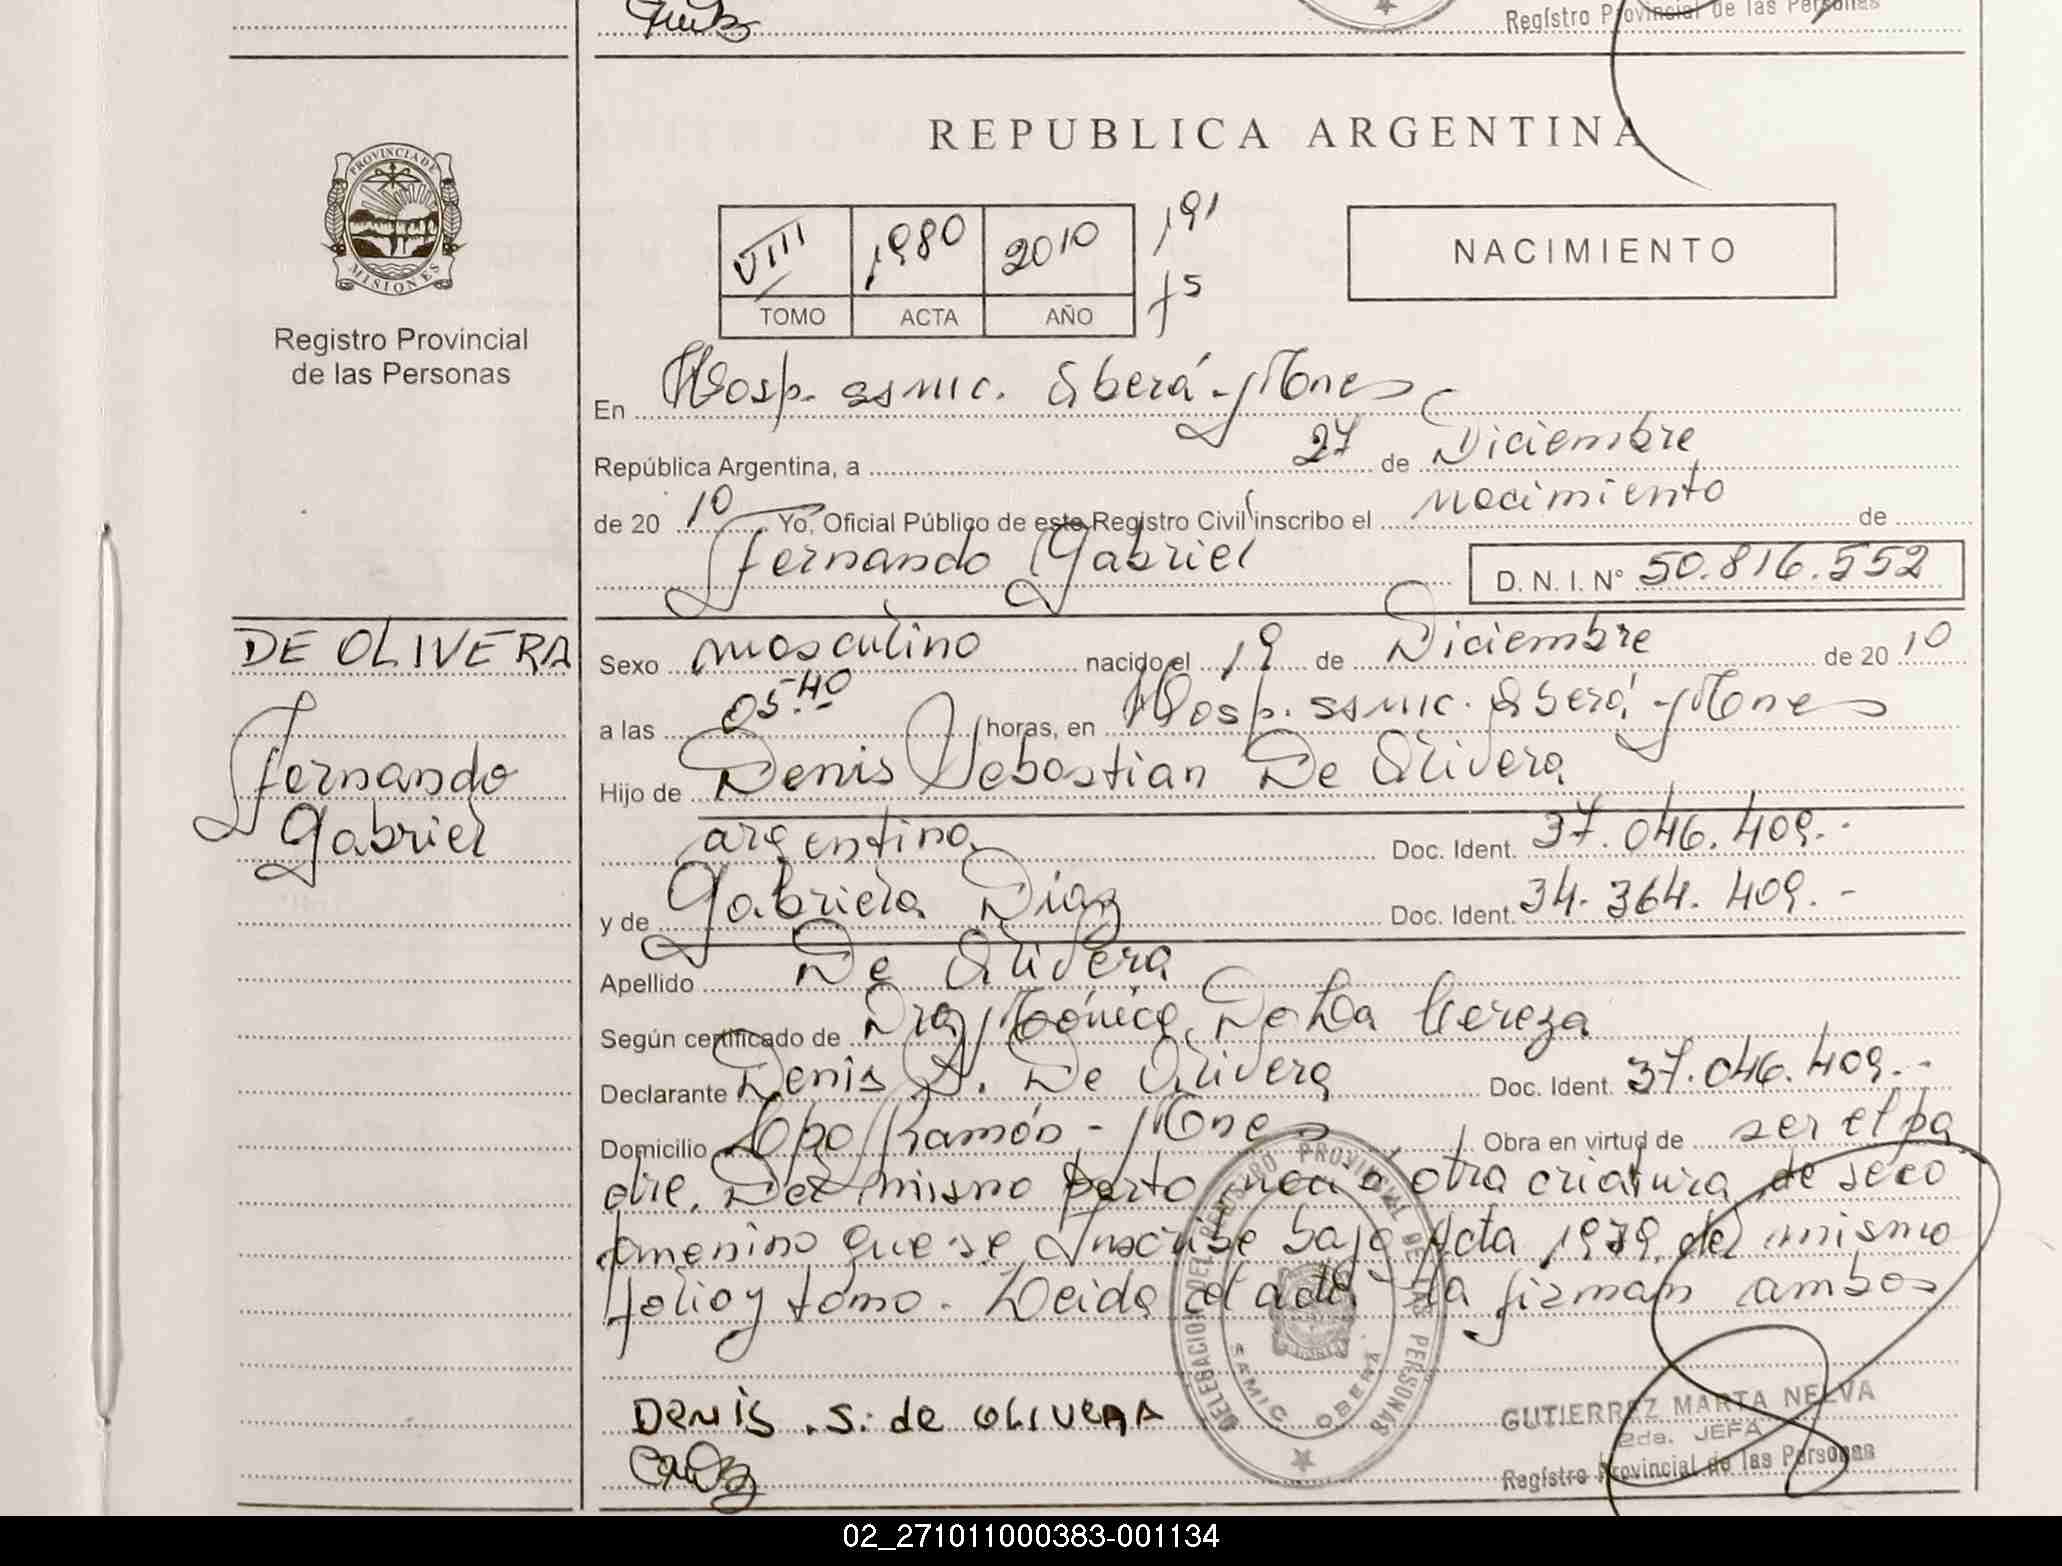 Registro Provincial de las Personas
REPUBLICA ARGENTINA
PROVINCIA DE
MISIONES
Registro Provincial
de las Personas
VIII 1980 2010 191
TOMO ACTA AÑO f 5
NACIMIENTO
En Hosp. SAMIC. Oberá - Mnes
República Argentina, a 27 de Diciembre
de 20 10 Yo, Oficial Público de este Registro Civil inscribo el nacimiento de
Fernando Gabriel D. N. I. N° 50.816.552
DE OLIVERA
Fernando
Gabriel
Sexo masculino nacido el 19 de Diciembre de 20 10
a las 05.40 horas, en Hosp. SAMIC. Oberá - Mnes
Hijo de Denis Sebastian De Olivera
argentino Doc. Ident. 37.046.409.-
y de Gabriela Diaz Doc. Ident. 34.364.409.-
Apellido De Olivera
Según certificado de Dra Mónica De La Cereza
Declarante Denis S. De Olivera Doc. Ident. 37.046.409.-
Domicilio Cpo Ramón - Mnes Obra en virtud de ser el pa
dre. Del mismo parto nació otra criatura de sexo
femenino que se inscribe bajo Acta 1979 del mismo
folio y tomo. Leida el acta la firman ambos
DENIS . S. de OLIVERA
GUTIERREZ MARTA NELVA
2da. JEFA
Registro Provincial de las Personas
DELEGACION DEL REGISTRO PROVINCIAL DE LAS PERSONAS
SAMIC OBERA
02_271011000383-001134